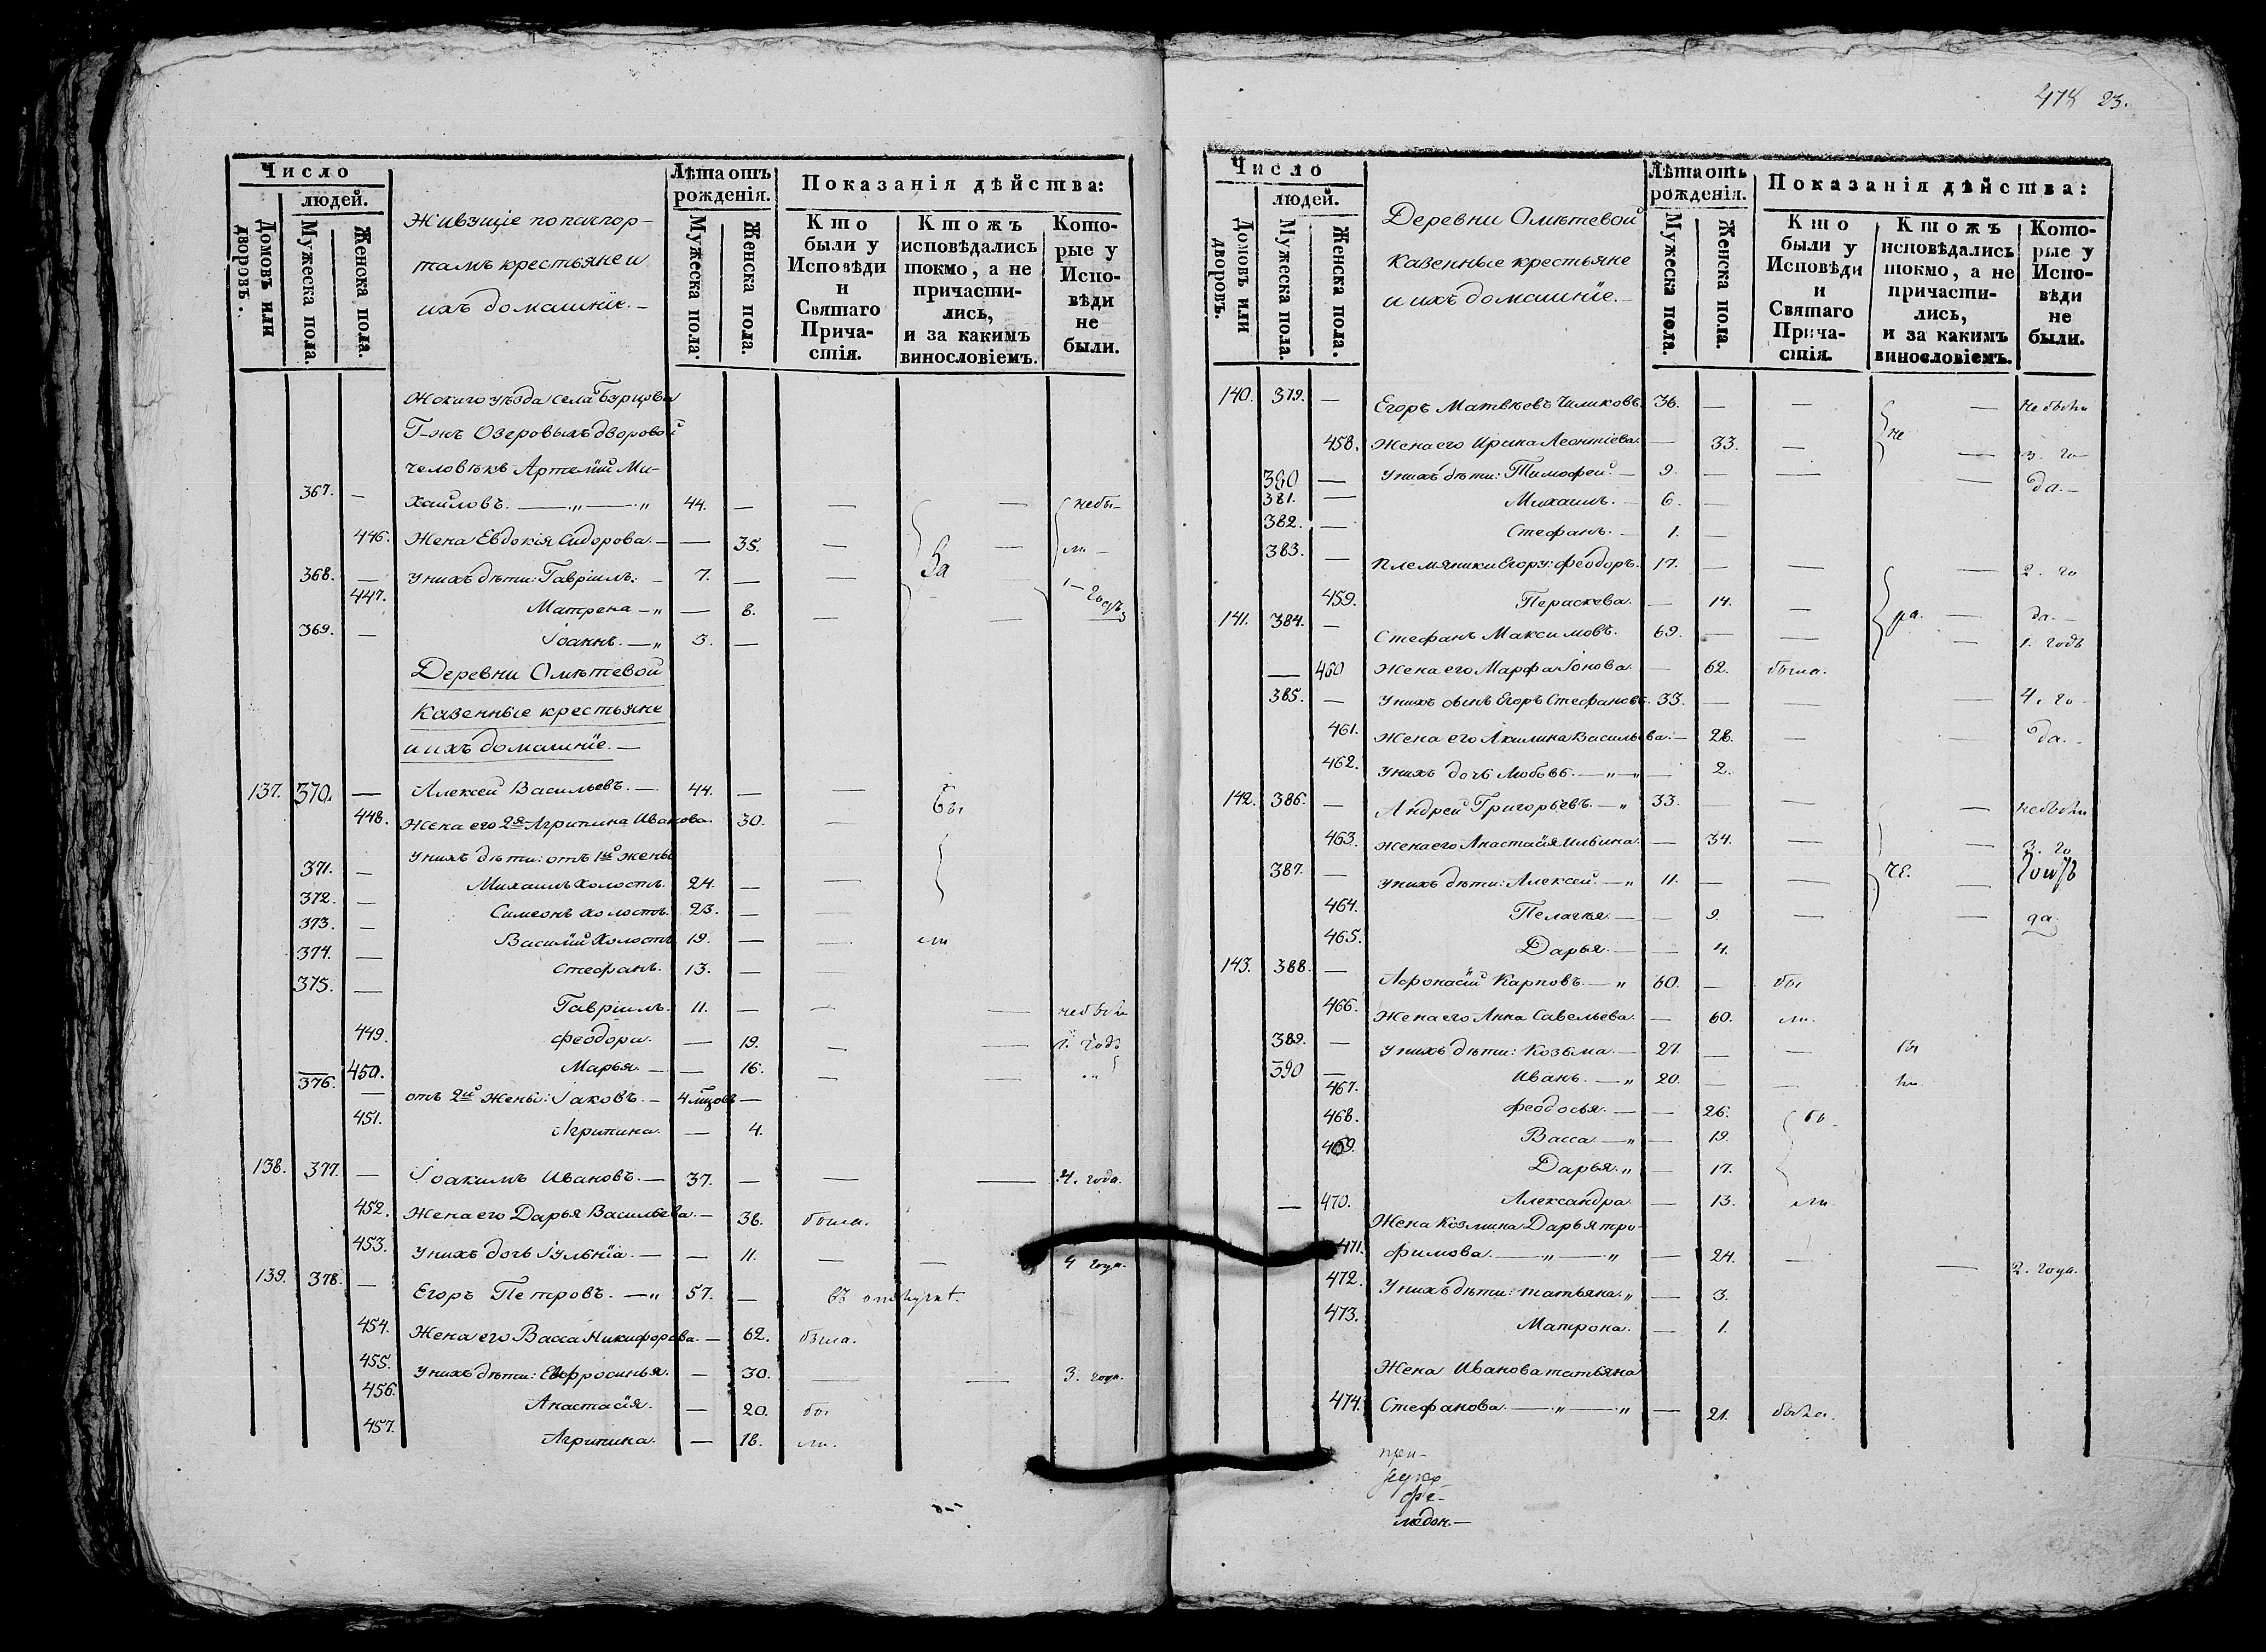 478 23.
Число
людей.
Домовъ или дворовъ.
Мужеска пола.
Женска пола.
Живущіе по паспор-
тамъ крестьяне и
ихъ домашніе. —
Лѣта отъ
рожденія.
Мужеска пола.
Женска пола.
Показанія дѣйства:
Кто были у Исповѣди и Святаго Прича-стія.
Ктожъ исповѣдались токмо, а не причасти-лись, и за какимъ винословіемъ.
Кото-рые у Испо-вѣди не были.
уѣзда села Бурцова
Г-нъ Озеровыхъ дворовой
человѣкъ Артемій Ми-
367. — хайловъ. — „ — „ 44. — — — небы-
446. Жена Евдокія Сидорова. — — 35. — За — ли —
368. — У нихъ дѣти: Гавріилъ: — 7. — — 1 — годъ
447. Матрена — „ — 8. — —
369. — Іоаннъ. — „ 3. —
Деревни Омѣтевой
Казенные крестьяне
и ихъ домашніе. —
137. 370. — Алексей Васильевъ. — 44. — — бы
448. Жена его 2я Агрипина Иванова. 30. —
У нихъ дѣти: отъ 1й жены
371. — Михаилъ холостъ. 24. — —
372. — Симеонъ холостъ. 23. — —
373. — Василій Холостъ 19. — — ли
374. — Стефанъ. 13. — —
375. — Гавріилъ. 11. — — — небыли
449. Феодора. — 19. — — 1. годъ
450. Марья. — — 16. — — „
376. — отъ 2й жены: Іаковъ. — 4 мцовъ —
451. Агрипина. — 4.
138. 377. — Іоакимъ Ивановъ. — 37. — — — 4. года.
452. Жена его Дарья Васильева. — 36. была.
453. У нихъ дочь Іульнія. — — 11. — — 4 года.
139. 378. — Егоръ Петровъ. — „ 57. — въ отлучкѣ.
454. Жена его Васса Никифорова. — 62. была.
455. У нихъ дѣти: Евфросинья. — 30. — — 3. года.
456. Анастасія. — 20. бы
457. Агрипина. — 18. ли.
Число
людей.
Домовъ или дворовъ.
Мужеска пола.
Женска пола.
Деревни Омѣтевой
Казенные крестьяне
и ихъ домашніе. —
Лѣта отъ
рожденія.
Мужеска пола.
Женска пола.
Показанія дѣйства:
Кто были у Исповѣди и Святаго Прича-стія.
Ктожъ исповѣдались токмо, а не причасти-лись, и за какимъ винословіемъ.
Кото-рые у Испо-вѣди не были.
140. 379. — Егоръ Матвѣевъ Чиликовъ. 36. — — — небыли
458. Жена его Ирина Леонтіева. — 33. — не — 3. го-
380 — У нихъ дѣти: Тимофей. — 9. — — — да. —
381. — Михаилъ. — 6. —
382. — Стефанъ. — 1. —
383. — Племяники Егору: Феодоръ. 17. — — — 2. го
459. Пераскева. — 14. — ра. — да. —
141. 384. — Стефанъ Максимовъ. 69. — — — 1. годъ
— 460 Жена его Марфа Іонова. — 62. была.
385. — У нихъ сынъ Егоръ Стефановъ. 33. — — — 4. го -
461. Жена его Акилина Васильева. — 28. — — да. -
462. У нихъ дочь Любовь. — „ — „ — 2.
142. 386. — Андрей Григорьевъ. — „ 33. — — — небыли
463. Жена его Анастасія Ильина. — 34. — — 3. го
387. — У нихъ дѣти: Алексей. — „ 11. — — че. —
464. Пелагея. — — 9. — — да.
465. Дарья. — — 4.
143. 388. — Афонасій Карповъ. — „ 60. — бы
466. Жена его Анна Савельева. — 60. ли.
389. — У нихъ дѣти: Козьма. — 27. — — бы
390 — Иванъ. — „ 20. — — ли.
467. Феодосья. — — 26. бы -
468. Васса. — „ — 19.
469. Дарья. „ — 17.
— 470. Александра. — 13. ли
Жена Козмина Дарья Тро-
471. фимова. — „ — „ — 24. — — 2. года.
472. У нихъ дѣти: Татьяна. „ — 3.
473. Матрона. — 1.
Жена Иванова Татьяна
474. Стефанова. — „ — „ — 21. была.